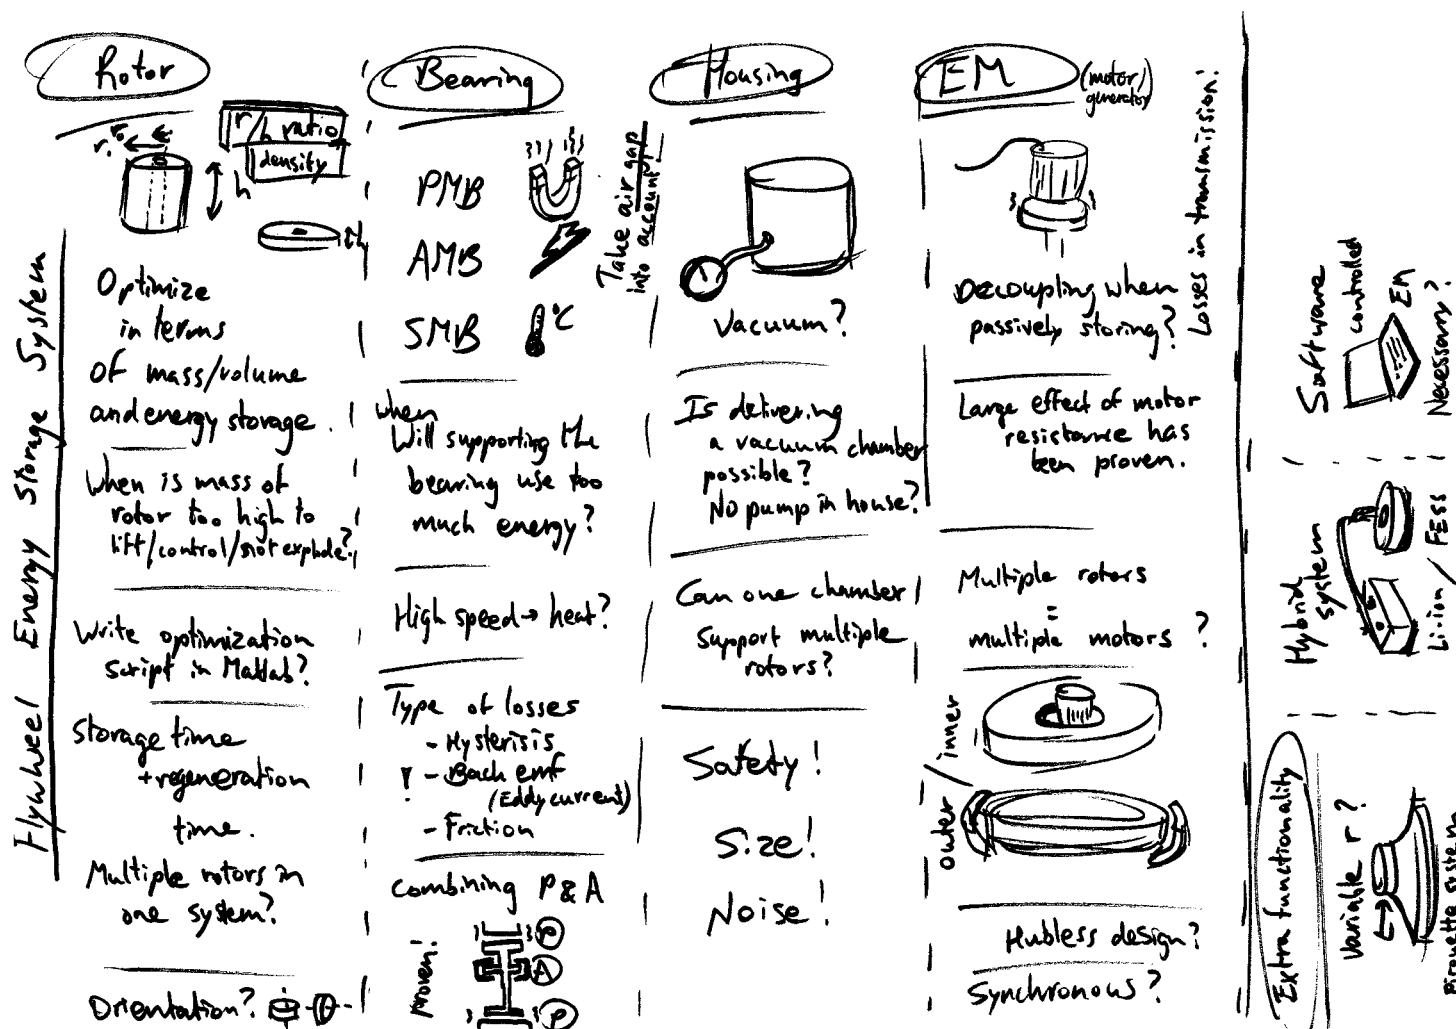 Flywheel Energy Storage System
Rotor
r/h ratio
density
r. r.
h
h
Optimize
in terms
of mass/volume
and energy storage.
When is mass of
rotor too high to
lift/control/not explode?
Write optimization
script in Matlab?
Storage time
+regeneration
time.
Multiple rotors in
one system?
Orientation?
Bearing
PMB
AMB
SMB
°C
Take air gap
into account!
when
Will supporting the
bearing use too
much energy?
High speed → heat?
Type of losses
- Hysterisis
! - Back emf
(Eddy current)
- Friction
Combining P & A
proven!
P
A
P
Housing
Vacuum?
Is delivering
a vacuum chamber
possible?
No pump in house?
Can one chamber
support multiple
rotors?
Safety!
Size!
Noise!
EM
(motor/
generator)
Losses in transmission!
Decoupling when
passively storing?
Large effect of motor
resistance has
been proven.
Multiple rotors
=
multiple motors ?
outer / inner
Hubless design?
Synchronous?
Software
controlled
EM
Necessary?
Hybrid
system
Li-ion / FESS
Extra functionality
Variable r?
Pirouette system